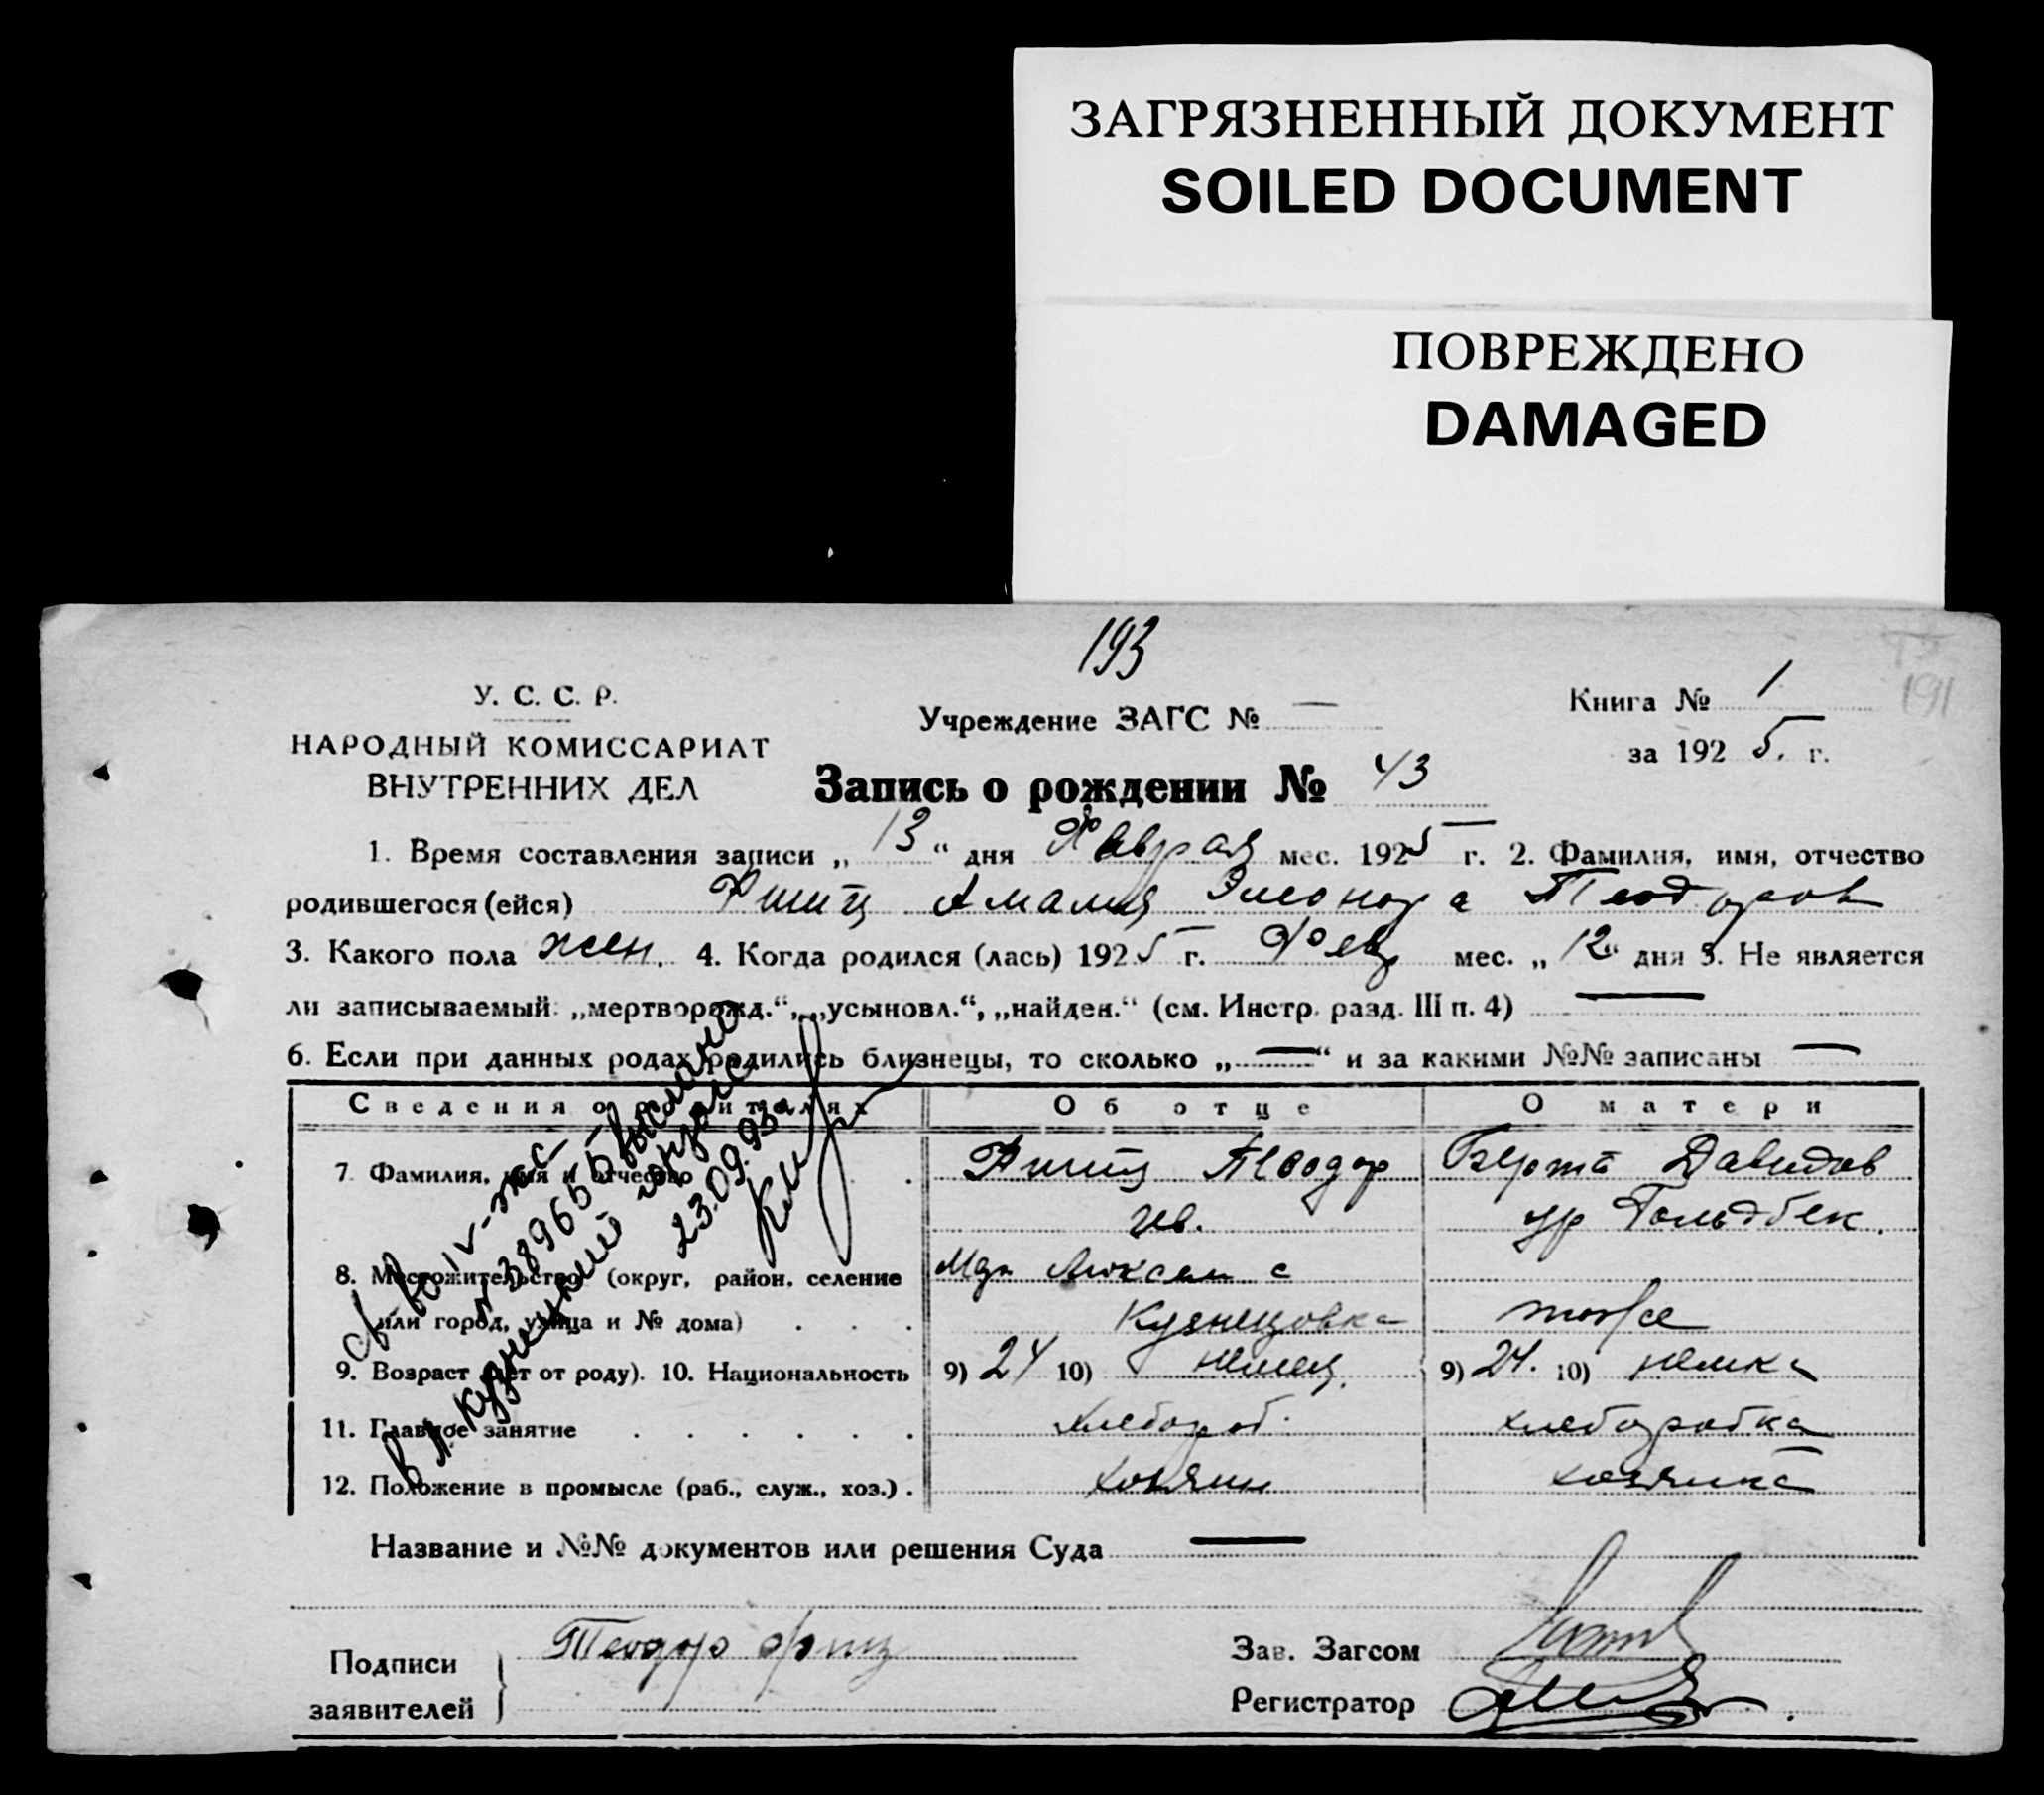 ЗАГРЯЗНЕННЫЙ ДОКУМЕНТ
SOILED DOCUMENT
ПОВРЕЖДЕНО
DAMAGED
193
191
У. С. С. Р.
НАРОДНЫЙ КОМИССАРИАТ
ВНУТРЕННИХ ДЕЛ
Учреждение ЗАГС № —
Книга № 1
за 1925 г.
Запись о рождении № 43
1. Время составления записи „13“ дня Февраля мес. 1925 г. 2. Фамилия, имя, отчество
родившегося (ейся) Амалия Элеонора Теодоров
3. Какого пола жен. 4. Когда родился (лась) 1925 г. Февр мес. „12“ дня 5. Не является
ли записываемый: „мертворожд.“, „усыновл.“, „найден.“ (см. Инстр. разд. III п. 4) —
6. Если при данных родах родились близнецы, то сколько „—“ и за какими №№ записаны —
Сведения о родителях Об отце О матери
7. Фамилия, имя и отчество Теодор Берта Давидов
ив. ур Гольдбек.
8. Местожительство (округ, район, селение с
или город, улица и № дома) Кузнецовка тоже
9. Возраст (лет от роду). 10. Национальность 9) 24 10) немец. 9) 24. 10) немка
11. Главное занятие хлебороб. хлеборобка
12. Положение в промысле (раб., служ., хоз.) хозяин хозяйка
Название и №№ документов или решения Суда —
Подписи
заявителей
Теодор Фриц
Зав. Загсом
Регистратор
выслано
23.09.93